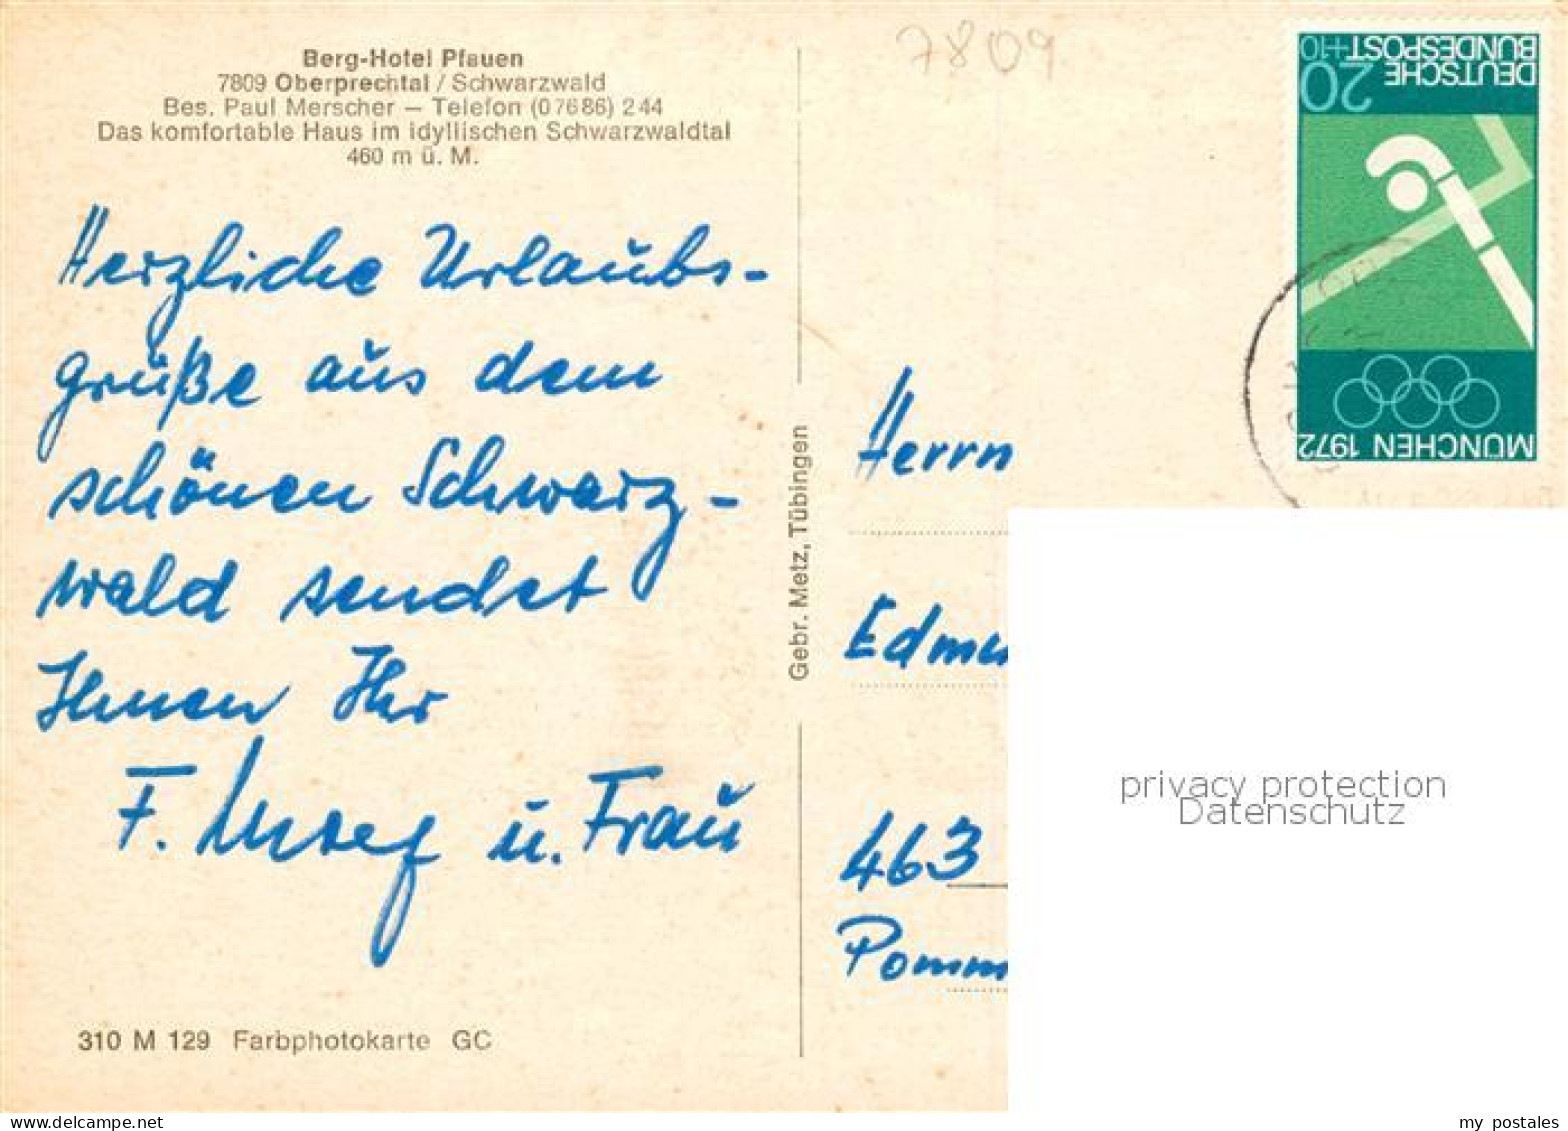 Berg-Hotel Pfauen
7809 Oberprechtal / Schwarzwald
Bes. Paul Merscher — Telefon (07686) 244
Das komfortable Haus im idyllischen Schwarzwaldtal
460 m ü. M.
Herzliche Urlaubs-
grüße aus dem
schönen Schwarz-
wald sendet
Ihnen Ihr
F. u. Frau
310 M 129 Farbphotokarte GC
Gebr. Metz, Tübingen
7809
DEUTSCHE
BUNDESPOST
20+10
MÜNCHEN 1972
Herrn
Edmu
463
Pomm
privacy protection
Datenschutz
my postales